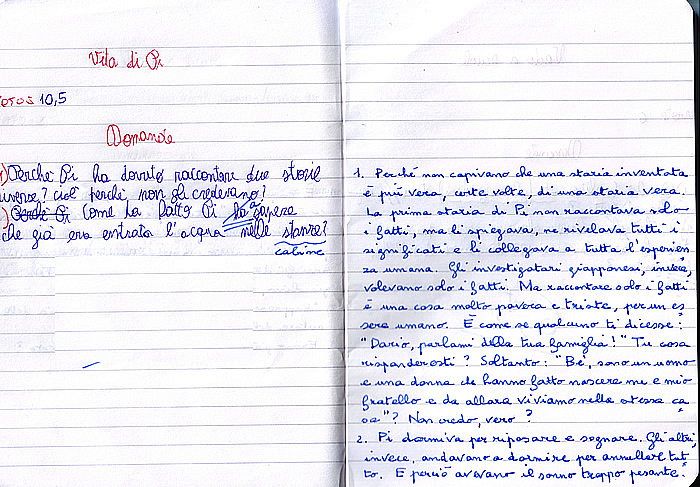 Vita di Pi
10,5
Domande
Perché Pi ha dovuto raccontare due storie
diverse? cioè perché, non gli credevano?
Perché Pi Come ha fatto Pi ha a sapere
che già era entrata l'acqua nelle stanze?
cabine
1. Perché non capivano che una storia inventata
è più vera, certe volte, di una storia vera.
La prima storia di Pi non raccontava solo
i fatti, ma li spiegava, ne rivelava tutti i
significati e li collegava a tutta l'esperien
za umana. Gli investigatori giapponesi, invece,
volevano solo i fatti. Ma raccontare solo i fatti
è una cosa molto povera e triste, per un es
sere umano. È come se qualcuno ti dicesse:
"Dario, parlami della tua famiglia!" Tu cosa
risponderesti? Soltanto: "Be', sono un uomo
e una donna che hanno fatto nascere me e mio
fratello e da allora viviamo nella stessa ca
sa"? Non credo, vero?
2. Pi dormiva per riposare e sognare. Gli altri,
invece, andavano a dormire per annullare tut
to. E perciò avevano il sonno troppo pesante.